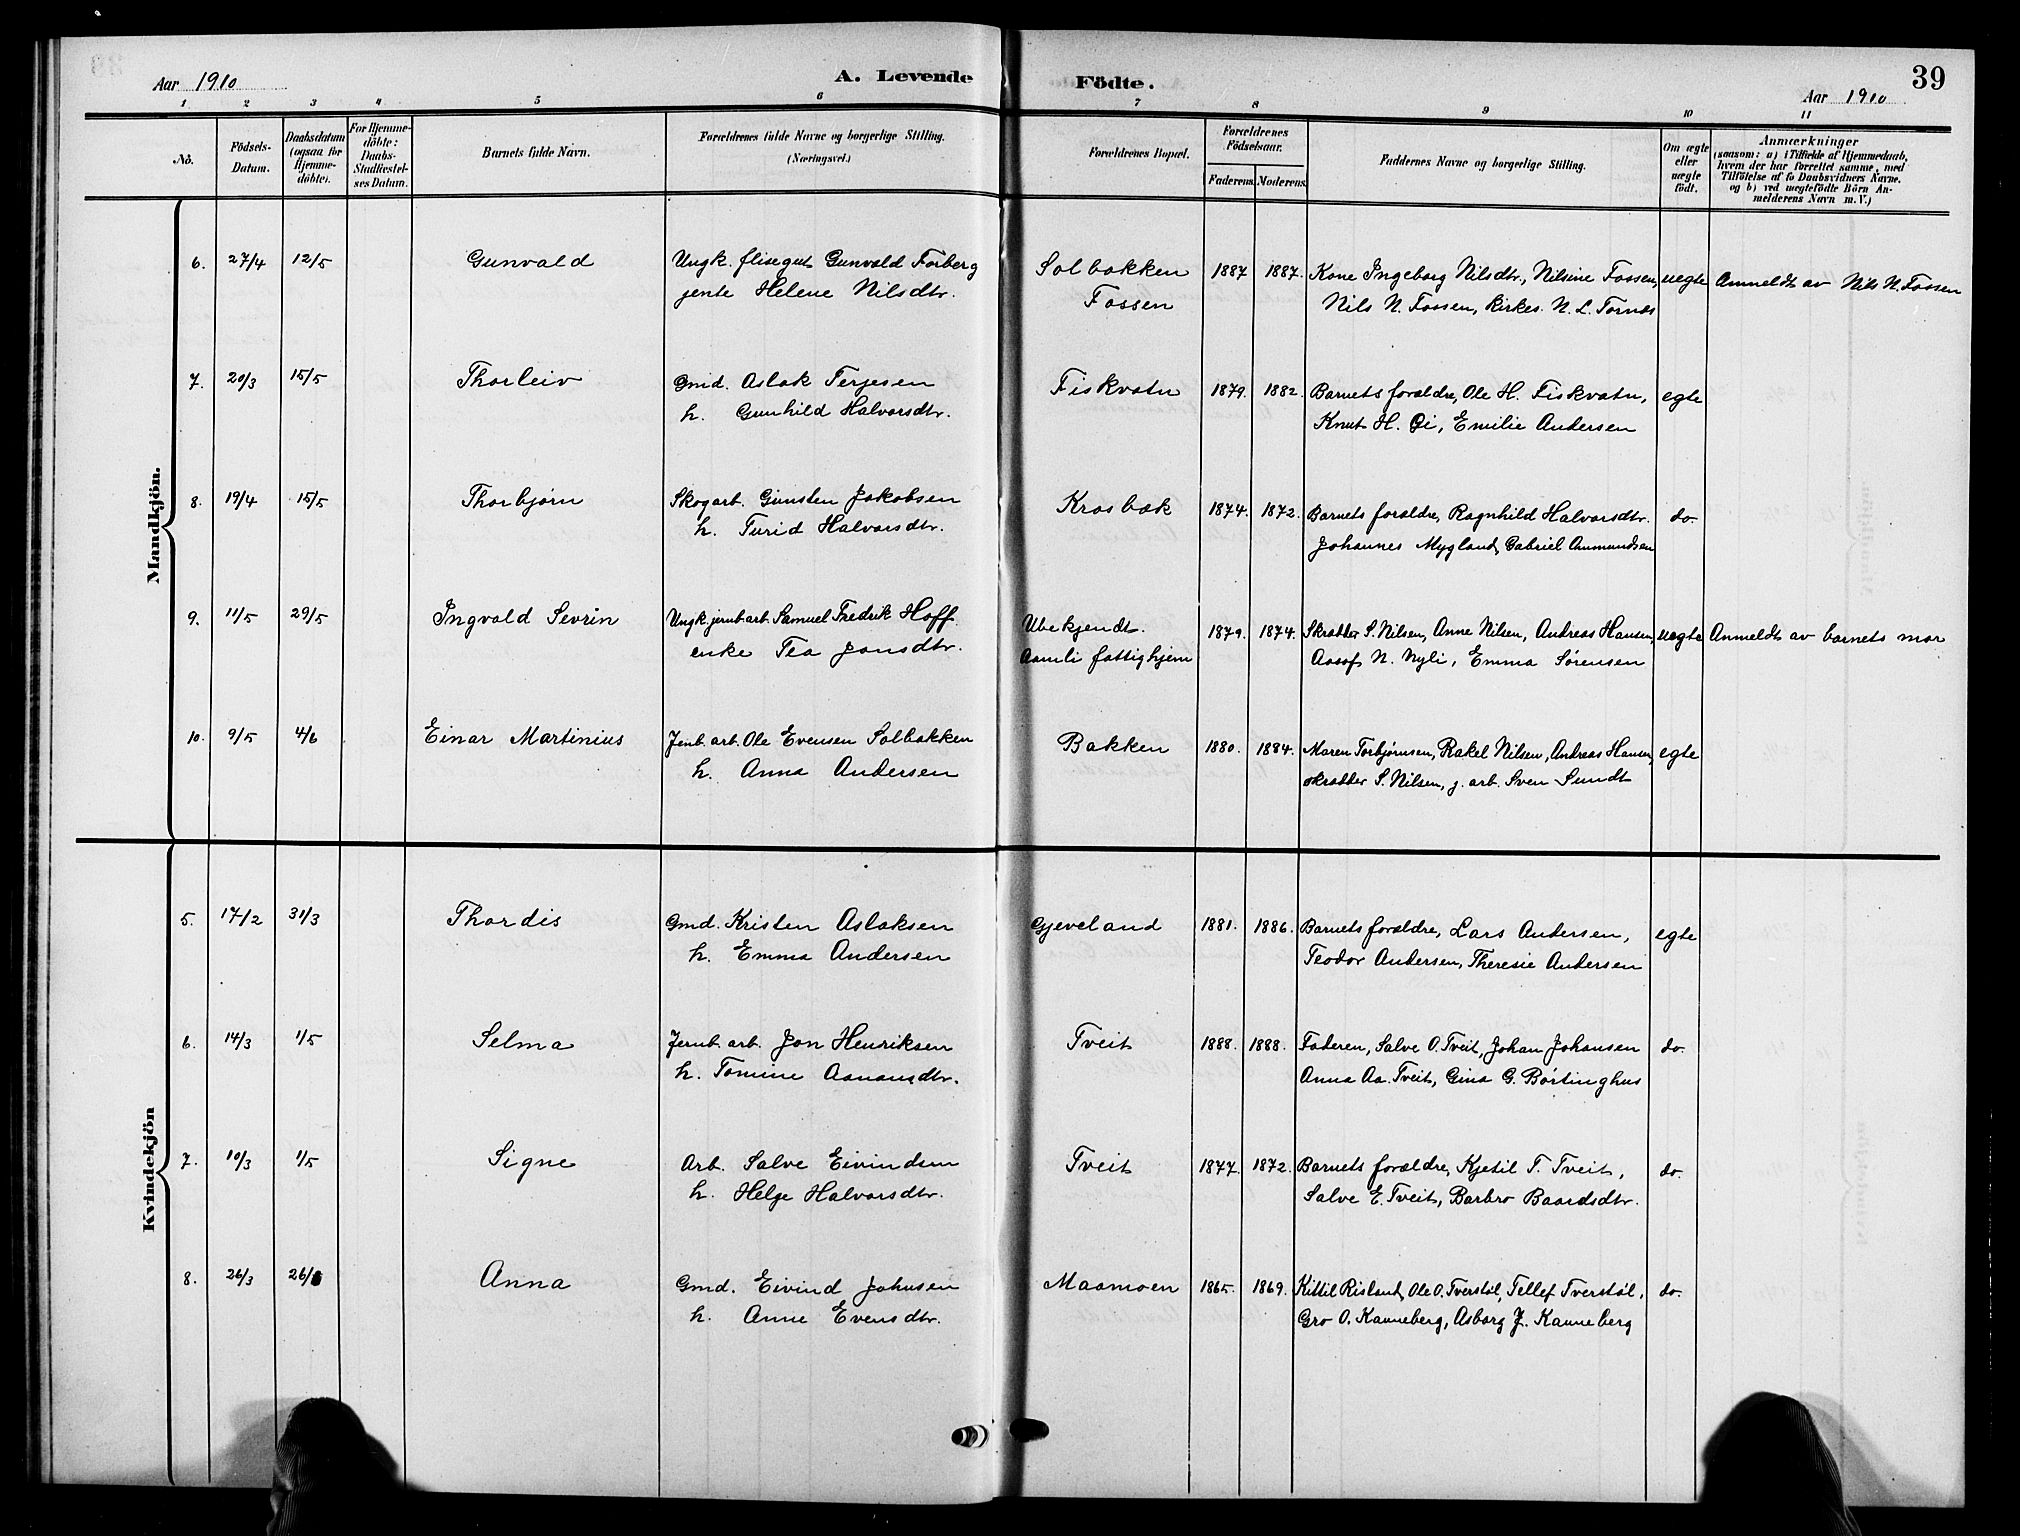 Aar 1910 A. Levende Födte. Aar 1910 39
1 2 3 4 5 6 7 8 9 10 11
No. Födsels-Datum. Daabsdatum (ogsaa for Hjemme-döbte). For Hjemme-döbte: Daabs-Stadfæstel-ses Datum. Barnets fulde Navn. Forældrenes fulde Navne og borgerlige Stilling. (Næringsvei.) Forældrenes Bopæl. Forældrenes Födselsaar. Faderens. Moderens. Faddernes Navne og borgerlige Stilling. Om ægte eller uægte födt. Anmærkninger (saasom: a) i Tilfælde af Hjemmedaab, hvem der har forrettet samme, med Tilföielse af to Daabsvidners Navne. og b) ved uægtefödte Börn An-melderens Navn m. V.)
Mandkjön.
6. 27/4 12/5 Gunvald Ungk. flisegut Gunvald Forberg Solbakken 1887 1887. Kone Ingeborg Nilsdtr., Nilsine Fossen, uegte Anmeldt av Nils N. Fossen
jente Helene Nilsdtr. Fossen Nils N. Fossen, Kirkes. N. L. Tornes
7. 20/3 15/5 Thorleiv Gmd. Aslak Terjesen Fiskvatn 1879. 1882. Barnets forældre, Ole H. Fiskvatn, egte
h. Gunhild Halvorsdtr. Knut H. Øi, Emilie Andersen
8. 19/4 15/5 Thorbjørn Skogarb. Gunsten Jakobsen Krosbæk 1874. 1872. Barnets forældre, Ragnhild Halvorsdtr. do.
h. Turid Halvorsdtr. Johannes Mygland, Gabriel Aanmundsen
9. 11/5 29/5 Ingvald Sevrin Ungk. jernb.arb. Samuel Fredrik Hoff. Ubekjendt. 1879. 1874. Skrædder S. Nilsen, Anne Nilsen, Andreas Hansen, uegte Anmeldt av barnets mor
enke Tea Jonsdtr. Aamli fattighjem Aasof N. Nyli, Emma Sørensen
10. 9/5 4/6 Einar Martinius Jernb. arb. Ole Evensen Solbakken Bakken 1880. 1884. Maren Torbjørnsen, Rakel Nilsen, Andreas Hansen, egte
h. Anna Andersen skrædder S. Nilsen, j. arb. Sven Sundt
Kvindekjön
5. 17/2 31/3 Thordis Gmd. Kristen Aslaksen Gjeveland 1881. 1886. Barnets forældre, Lars Andersen, egte
h. Emma Andersen Teodor Andersen, Theresie Andersen
6. 14/3 1/5 Selma Jernb. arb. Jon Henriksen Tveit 1888. 1888. Faderen, Salve O. Tveit, Johan Johansen do.
h. Tomine Aanonsdtr. Anna Aa. Tveit, Gina G. Børtinghus
7. 10/3 1/5 Signe Arb. Salve Eivindsen Tveit 1877. 1872. Barnets forældre, Kjetil T. Tveit, do.
h. Helge Halvorsdtr. Salve E. Tveit, Barbro Baardsdtr.
8. 26/3 26/ Anna Gmd. Eivind Johnsen Maamoen 1865. 1869. Kittil Risland, Ole O. Tverstøl, Tellef Tverstøl, do.
h. Anne Evensdtr. Gro O. Kanneberg, Asborg J. Kanneberg